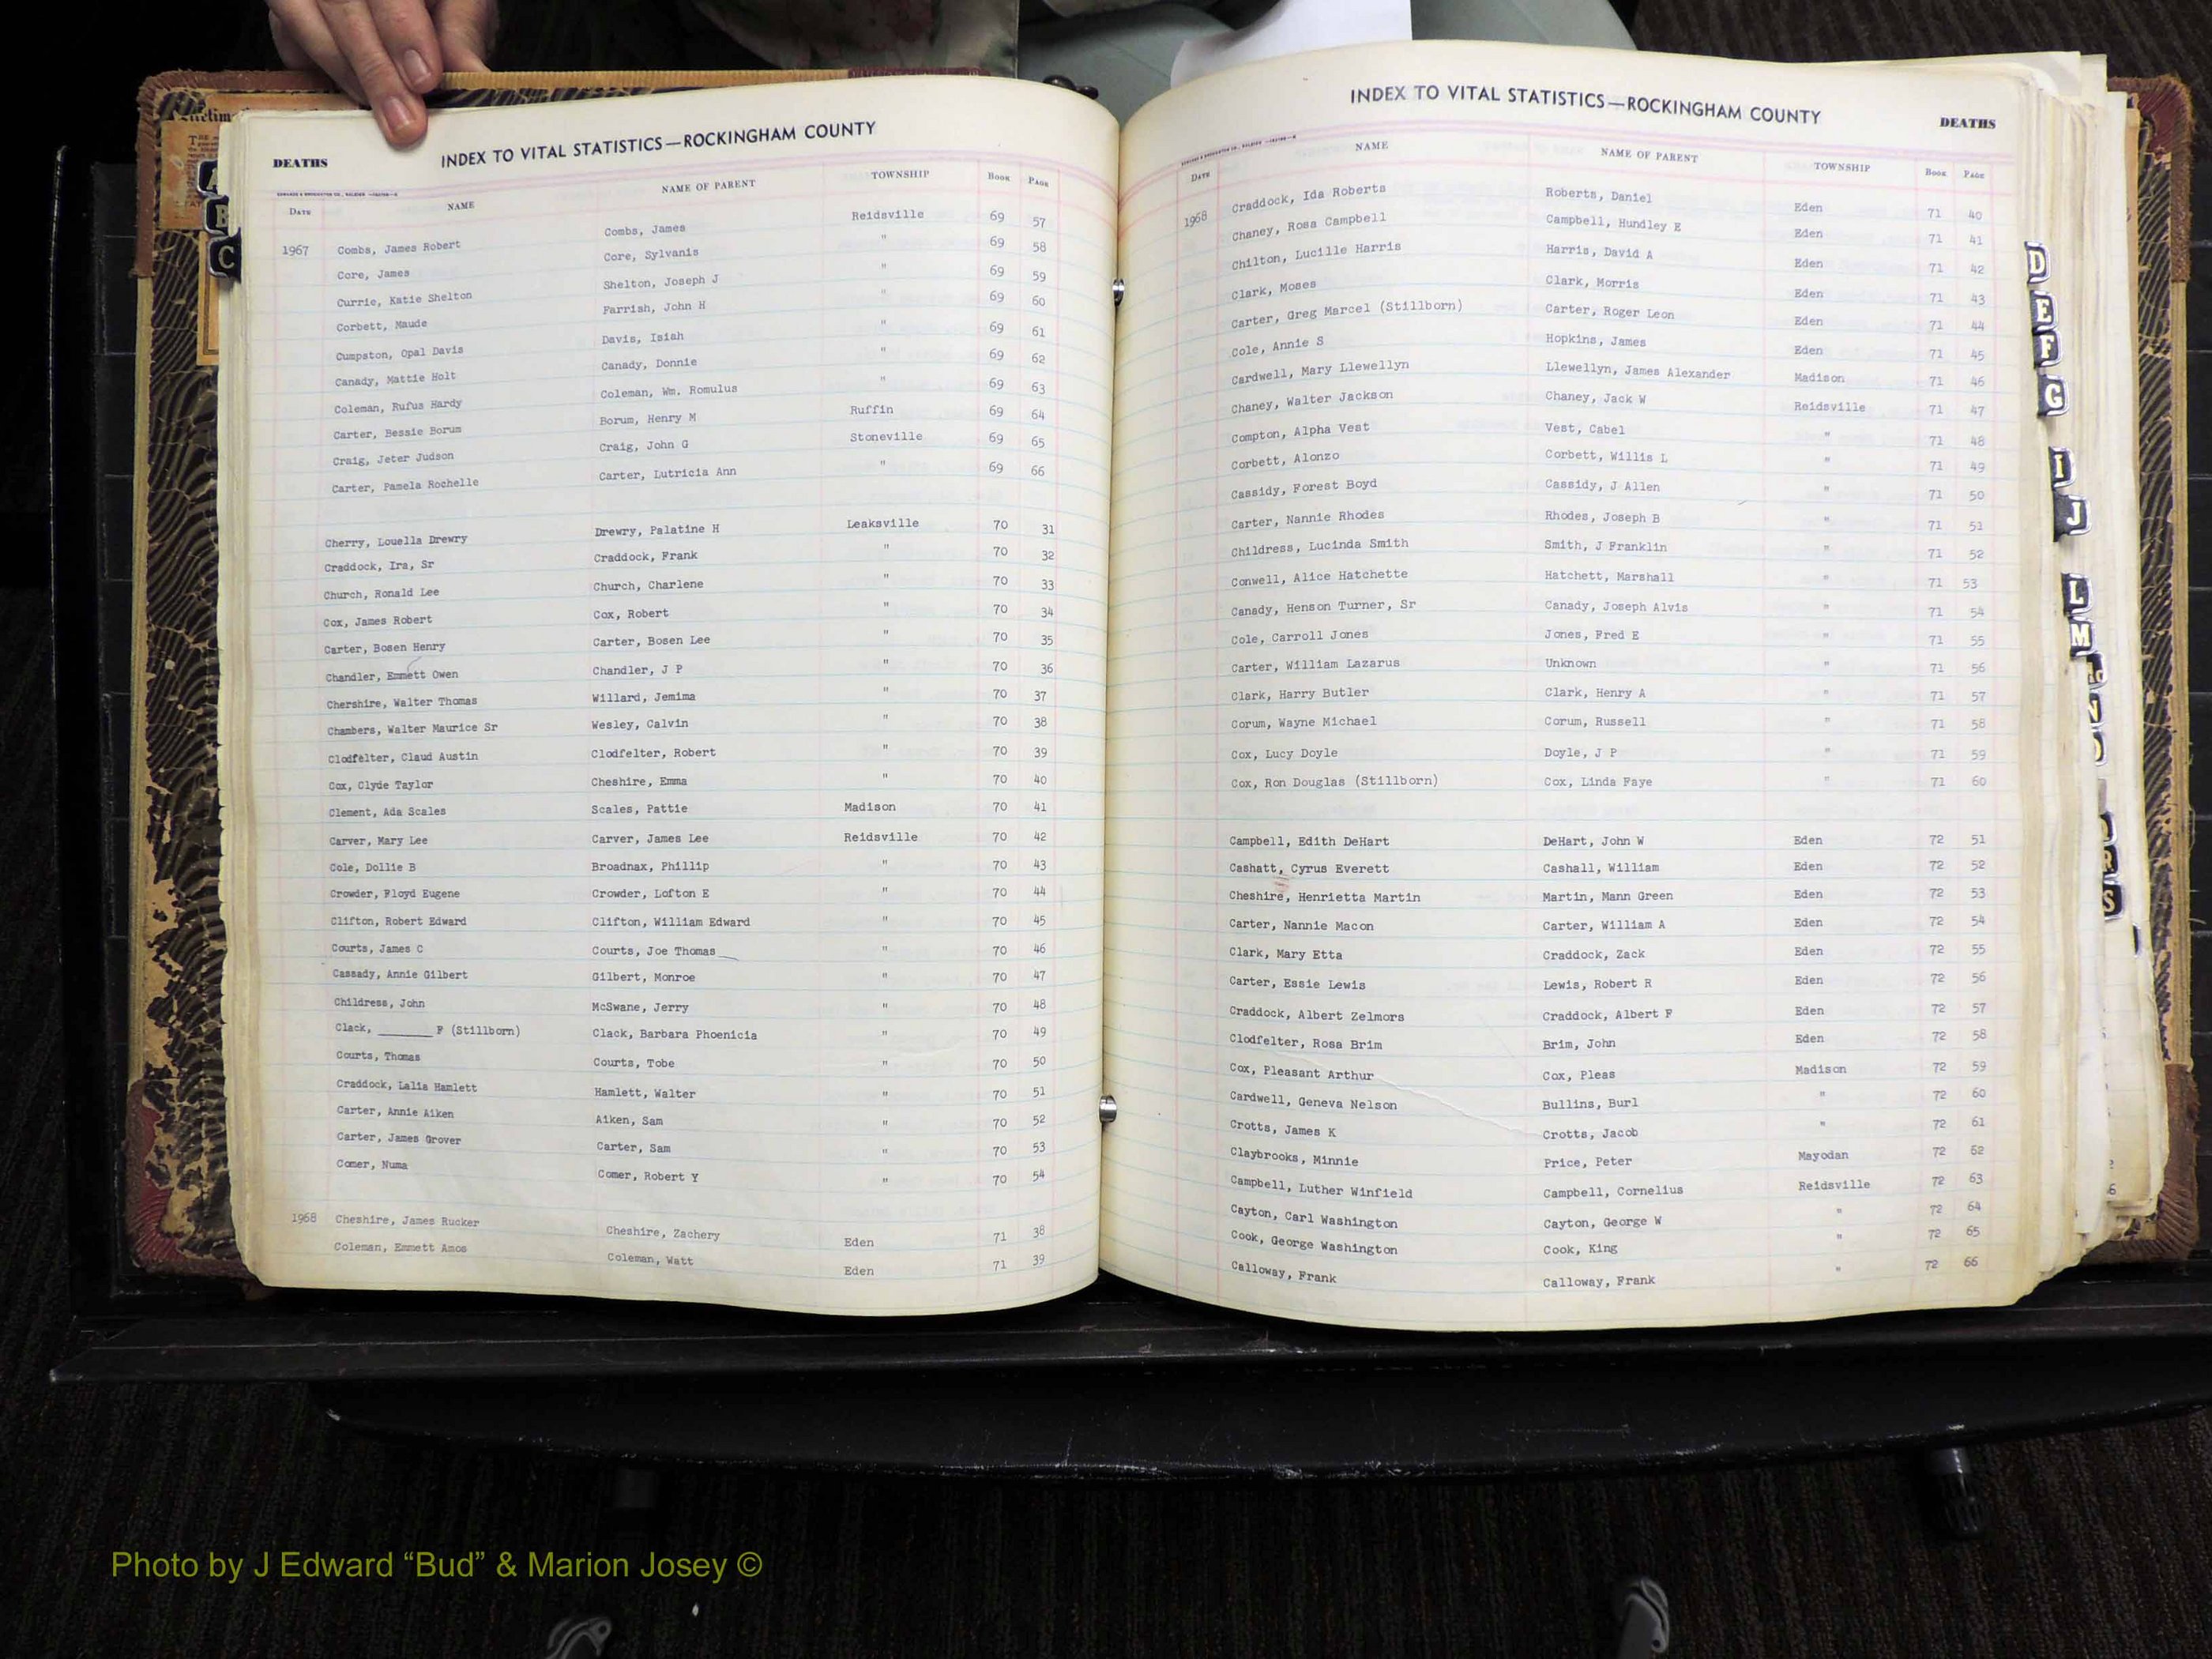 INDEX TO VITAL STATISTICS—ROCKINGHAM COUNTY
DEATHS
DATE NAME NAME OF PARENT TOWNSHIP BOOK PAGE
1967 Combs, James Robert Combs, James Reidsville 69 57
Core, James Core, Sylvanis " 69 58
Currie, Katie Shelton Shelton, Joseph J " 69 59
Corbett, Maude Farrish, John H " 69 60
Cumpston, Opal Davis Davis, Isiah " 69 61
Canady, Mattie Holt Canady, Donnie " 69 62
Coleman, Rufus Hardy Coleman, Wm. Romulus " 69 63
Carter, Bessie Borum Borum, Henry M Ruffin 69 64
Craig, Jeter Judson Craig, John G Stoneville 69 65
Carter, Pamela Rochelle Carter, Lutricia Ann " 69 66
Cherry, Louella Drewry Drewry, Palatine H Leaksville 70 31
Craddock, Ira, Sr Craddock, Frank " 70 32
Church, Ronald Lee Church, Charlene " 70 33
Cox, James Robert Cox, Robert " 70 34
Carter, Bosen Henry Carter, Bosen Lee " 70 35
Chandler, Emmett Owen Chandler, J P " 70 36
Chershire, Walter Thomas Willard, Jemima " 70 37
Chambers, Walter Maurice Sr Wesley, Calvin " 70 38
Clodfelter, Claud Austin Clodfelter, Robert " 70 39
Cox, Clyde Taylor Cheshire, Emma " 70 40
Clement, Ada Scales Scales, Pattie Madison 70 41
Carver, Mary Lee Carver, James Lee Reidsville 70 42
Cole, Dollie B Broadnax, Phillip " 70 43
Crowder, Floyd Eugene Crowder, Lofton E " 70 44
Clifton, Robert Edward Clifton, William Edward " 70 45
Courts, James C Courts, Joe Thomas " 70 46
Cassady, Annie Gilbert Gilbert, Monroe " 70 47
Childress, John McSwane, Jerry " 70 48
Clack, _______ F (Stillborn) Clack, Barbara Phoenicia " 70 49
Courts, Thomas Courts, Tobe " 70 50
Craddock, Lalia Hamlett Hamlett, Walter " 70 51
Carter, Annie Aiken Aiken, Sam " 70 52
Carter, James Grover Carter, Sam " 70 53
Comer, Numa Comer, Robert Y " 70 54
1968 Cheshire, James Rucker Cheshire, Zachery Eden 71 38
Coleman, Emmett Amos Coleman, Watt Eden 71 39
INDEX TO VITAL STATISTICS—ROCKINGHAM COUNTY
DEATHS
DATE NAME NAME OF PARENT TOWNSHIP BOOK PAGE
1968 Craddock, Ida Roberts Roberts, Daniel Eden 71 40
Chaney, Rosa Campbell Campbell, Hundley E Eden 71 41
Chilton, Lucille Harris Harris, David A Eden 71 42
Clark, Moses Clark, Morris Eden 71 43
Carter, Greg Marcel (Stillborn) Carter, Roger Leon Eden 71 44
Cole, Annie S Hopkins, James Eden 71 45
Cardwell, Mary Llewellyn Llewellyn, James Alexander Madison 71 46
Chaney, Walter Jackson Chaney, Jack W Reidsville 71 47
Compton, Alpha Vest Vest, Cabel " 71 48
Corbett, Alonzo Corbett, Willis L " 71 49
Cassidy, Forest Boyd Cassidy, J Allen " 71 50
Carter, Nannie Rhodes Rhodes, Joseph B " 71 51
Childress, Lucinda Smith Smith, J Franklin " 71 52
Conwell, Alice Hatchette Hatchett, Marshall " 71 53
Canady, Henson Turner, Sr Canady, Joseph Alvis " 71 54
Cole, Carroll Jones Jones, Fred E " 71 55
Carter, William Lazarus Unknown " 71 56
Clark, Harry Butler Clark, Henry A " 71 57
Corum, Wayne Michael Corum, Russell " 71 58
Cox, Lucy Doyle Doyle, J P " 71 59
Cox, Ron Douglas (Stillborn) Cox, Linda Faye " 71 60
Campbell, Edith DeHart DeHart, John W Eden 72 51
Cashatt, Cyrus Everett Cashall, William Eden 72 52
Cheshire, Henrietta Martin Martin, Mann Green Eden 72 53
Carter, Nannie Macon Carter, William A Eden 72 54
Clark, Mary Etta Craddock, Zack Eden 72 55
Carter, Essie Lewis Lewis, Robert R Eden 72 56
Craddock, Albert Zelmors Craddock, Albert F Eden 72 57
Clodfelter, Rosa Brim Brim, John Eden 72 58
Cox, Pleasant Arthur Cox, Pleas Madison 72 59
Cardwell, Geneva Nelson Bullins, Burl " 72 60
Crotts, James K Crotts, Jacob " 72 61
Claybrooks, Minnie Price, Peter Mayodan 72 62
Campbell, Luther Winfield Campbell, Cornelius Reidsville 72 63
Cayton, Carl Washington Cayton, George W " 72 64
Cook, George Washington Cook, King " 72 65
Calloway, Frank Calloway, Frank " 72 66
A
B
C
D
E
F
G
I
J
L
M
N
R
S
Photo by J Edward “Bud” & Marion Josey ©